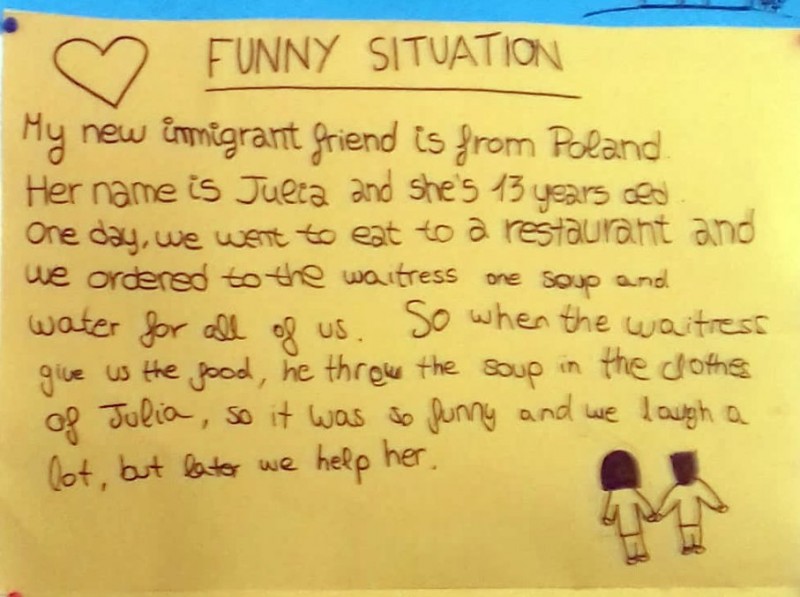 FUNNY SITUATION
My new immigrant friend is from Poland.
Her name is Julia and she's 13 years old.
One day, we went to eat to a restaurant and
we ordered to the waitress one soup and
water for all of us. So when the waitress
give us the food, he threw the soup in the clothes
of Julia, so it was so funny and we laugh a
lot, but later we help her.